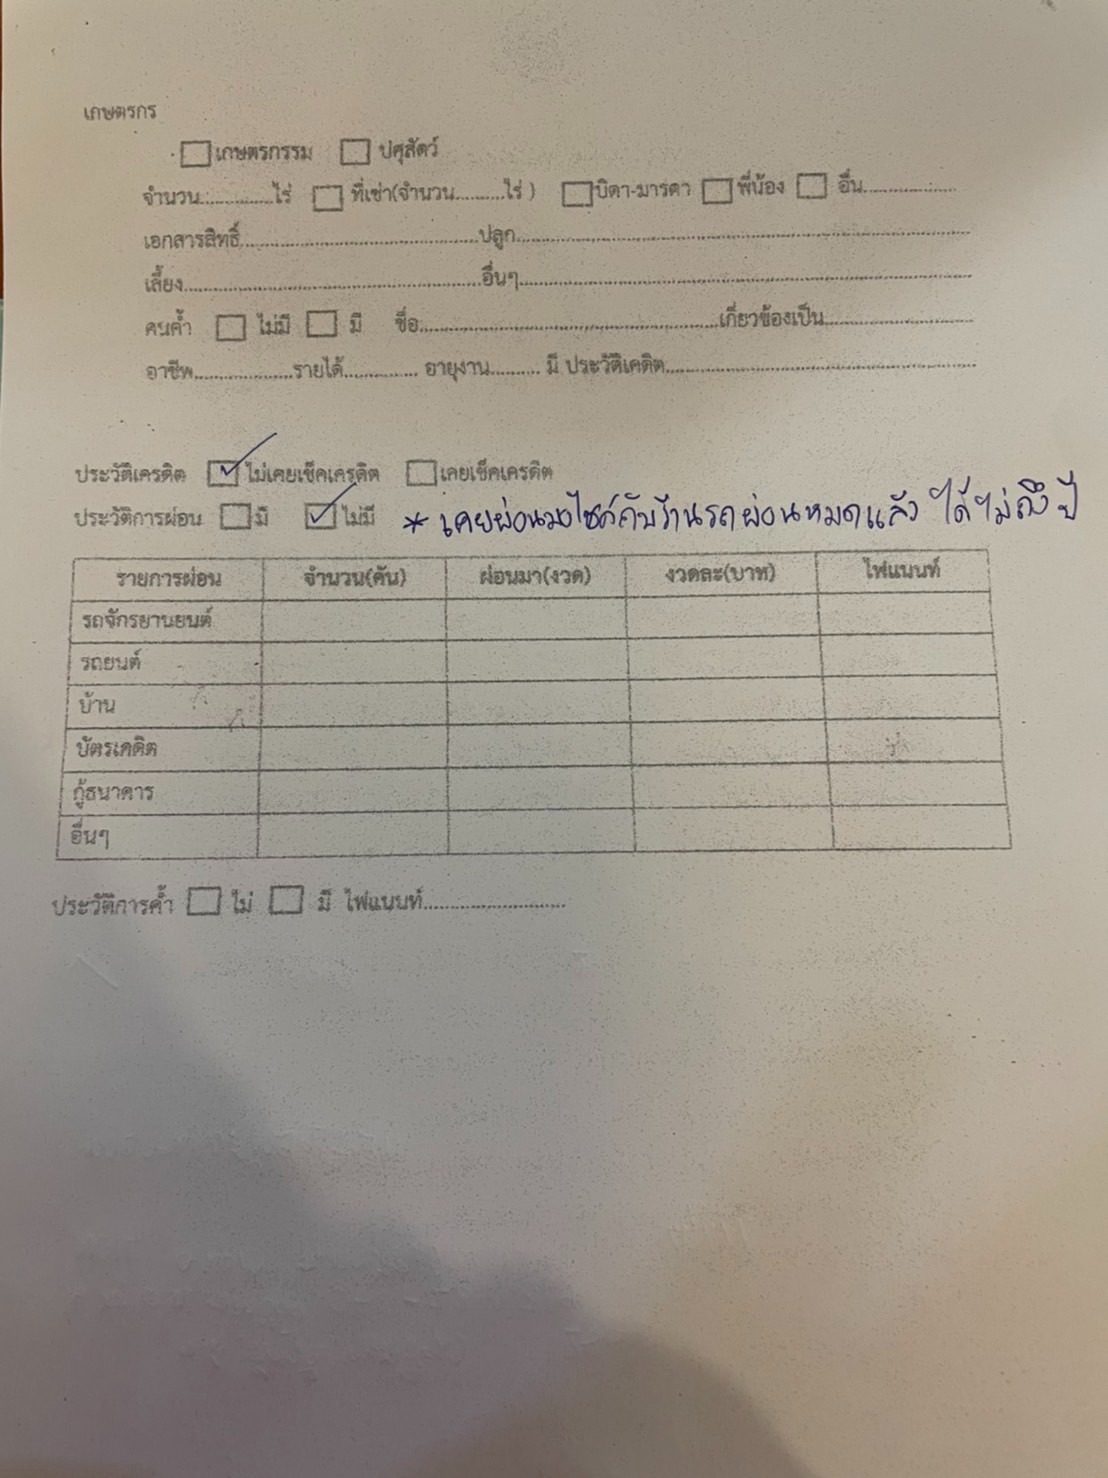 เกษตรกร
เกษตรกรรม ปศุสัตว์
จำนวน..............ไร่ ที่เช่า(จำนวน..........ไร่ ) บิดา-มารดา พี่น้อง อื่น...................
เอกสารสิทธิ์................................................ปลูก................................................................
เลี้ยง............................................................อื่นๆ................................................................
คนค้ำ ไม่มี มี ชื่อ............................................................เกี่ยวข้องเป็น..............................
อาชีพ....................รายได้............... อายุงาน.......... มี ประวัติเคดิต................................................
ประวัติเครดิต ✓ ไม่เคยเช็คเครดิต เคยเช็คเครดิต
ประวัติการผ่อน มี ✓ ไม่มี * เคยผ่อนมอไซค์กับร้านรถผ่อนหมดแล้ว ได้ไม่ถึงปี
รายการผ่อน จำนวน(คัน) ผ่อนมา(งวด) งวดละ(บาท) ไฟแนนท์
รถจักรยานยนต์
รถยนต์
บ้าน
บัตรเคดิต
กู้ธนาคาร
อื่นๆ
ประวัติการค้ำ ไม่ มี ไฟแนนท์............................